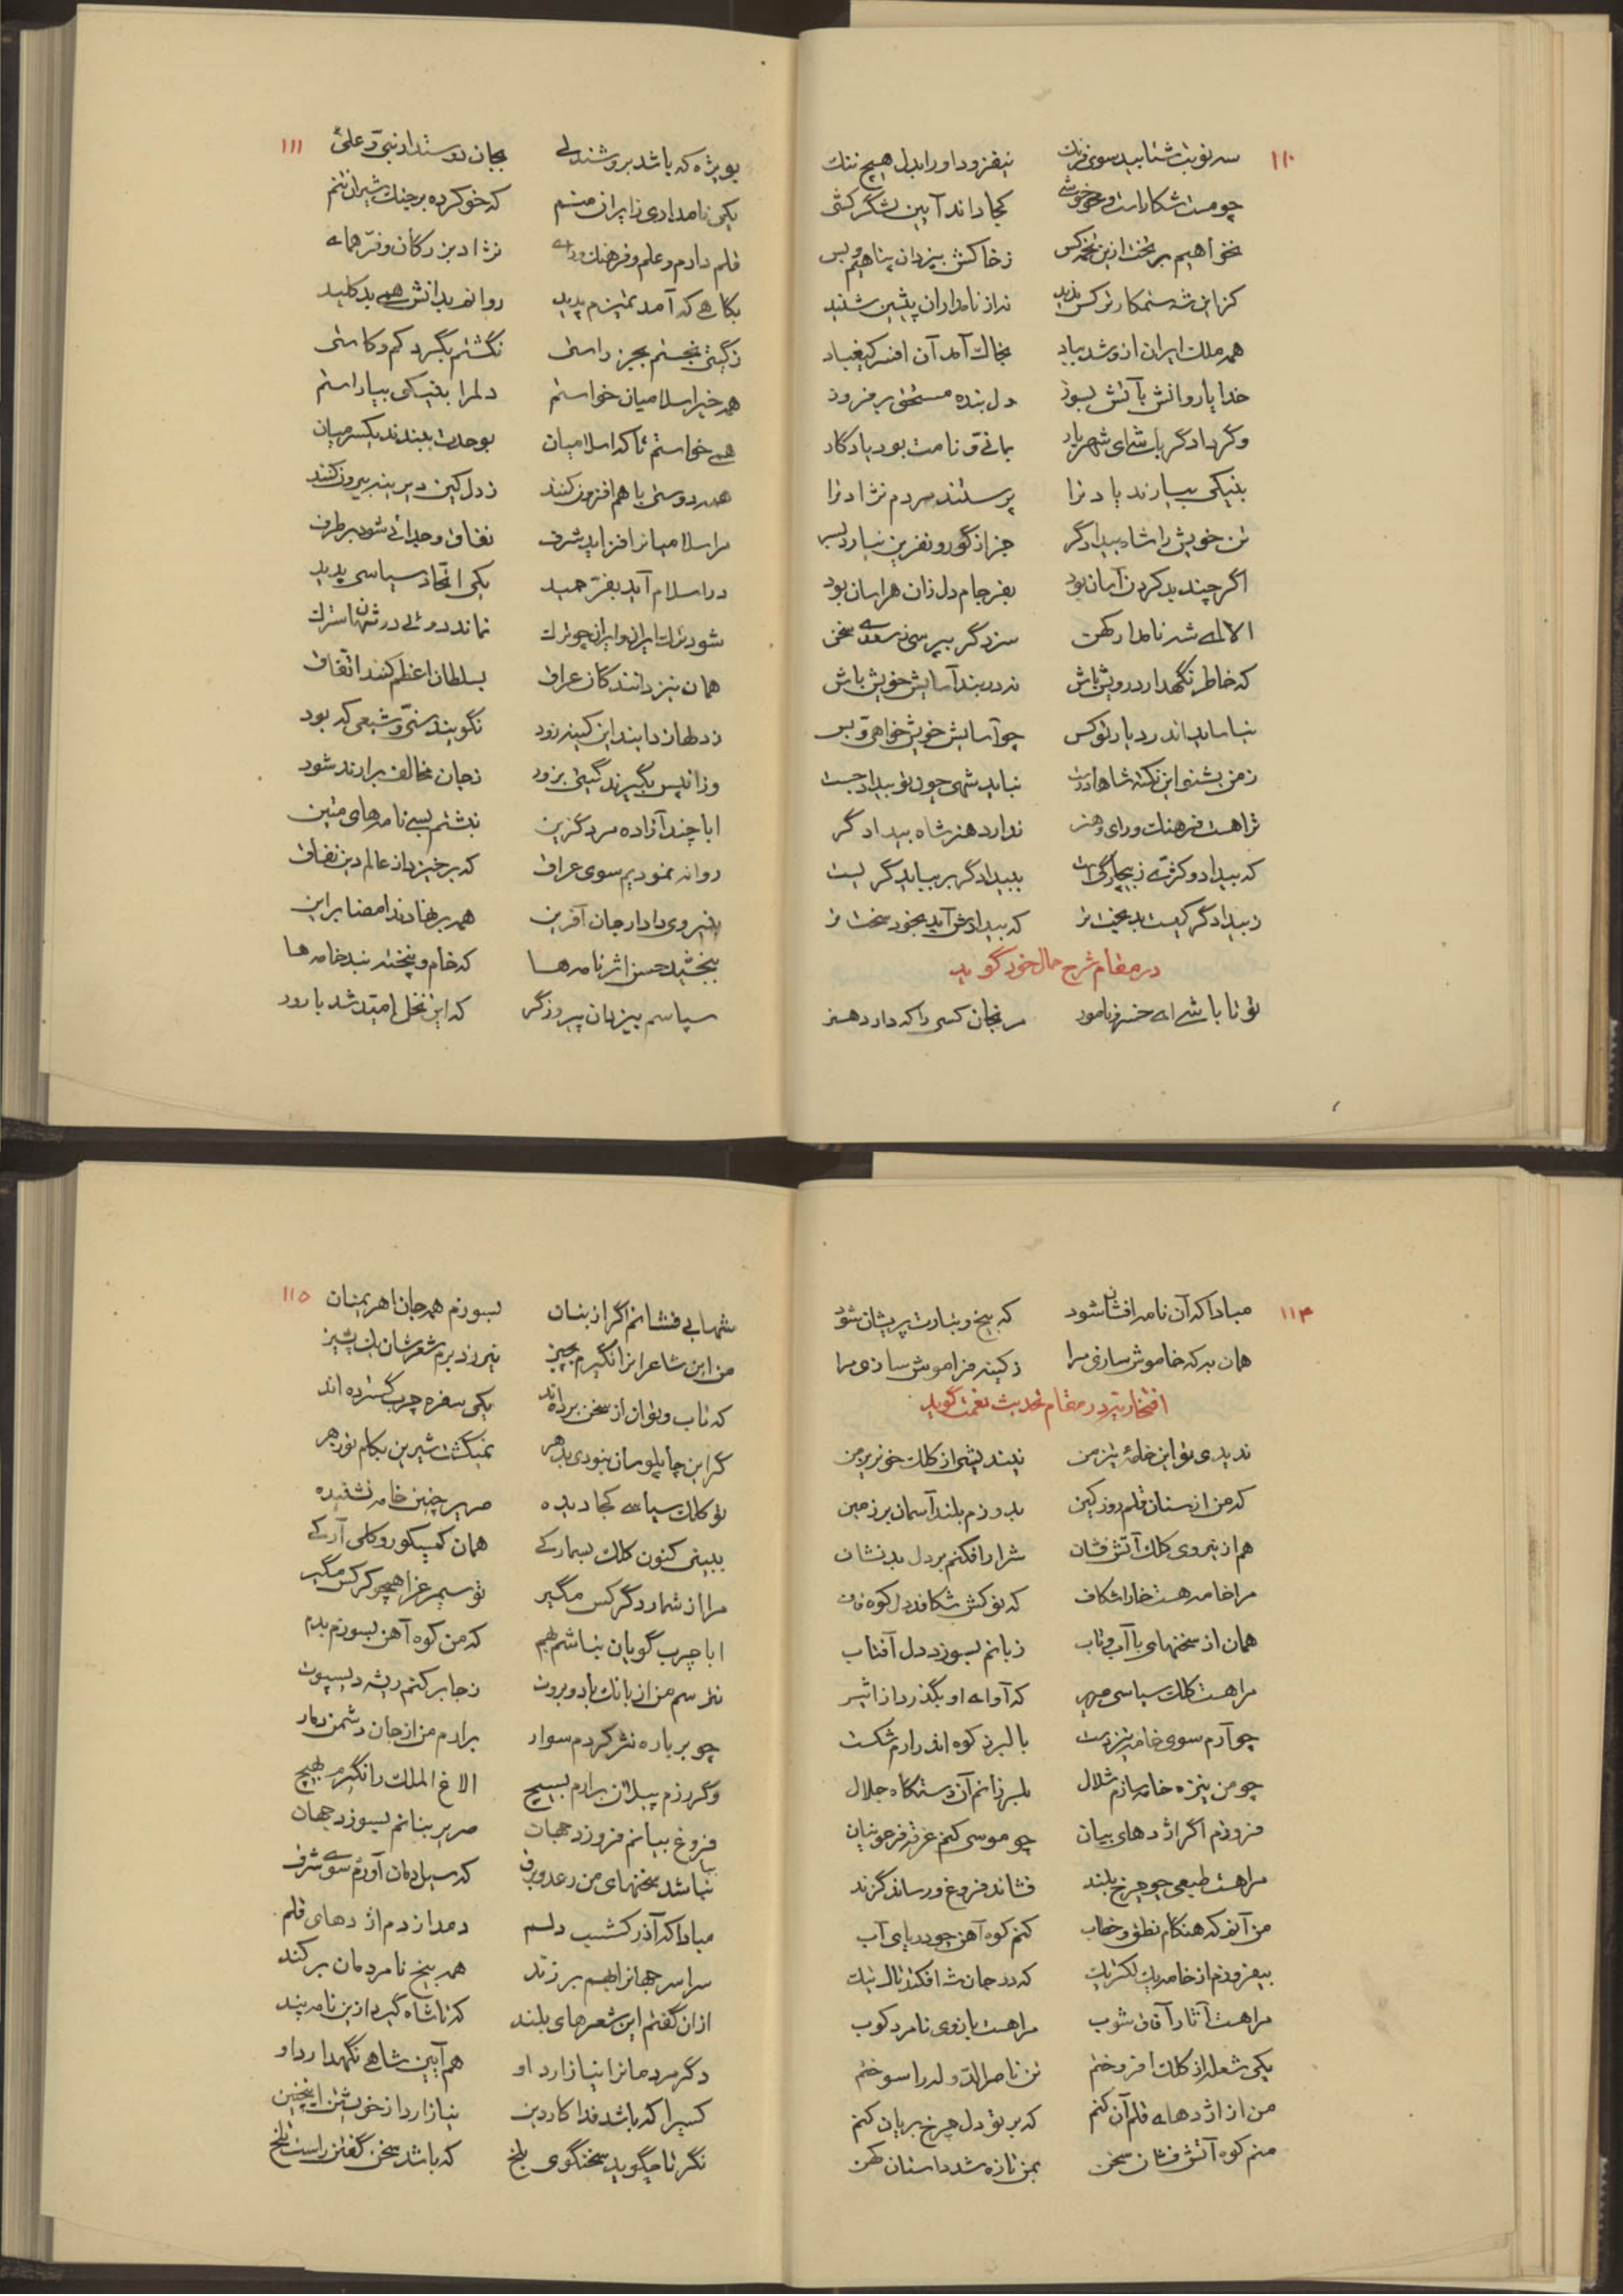 ۱۱۰
سه نوبت شتابید سوی فرنگ نیفزود او را بدل هیچ ننگ
چو مست شکار است و می خوشی کجا داند آیین لشگر کشی
نخواهیم بر تخت ازین تخمه کس ز خاکش بیزدان پناهیم و بس
کزاین شه ستمکارتر کس ندید نه از نامداران پیشین شنید
همه ملک ایران ازو شد بباد بخاک آمد آن افسر کیقباد
خدایا روانش بآتش بسوز دل بنده مستحق برفروز
وگر دادگر باشی ای شهریار بمانی و نامت بود یادگار
بنیکی بسپارند یاد ترا پرستند مردم نژاد ترا
تن خویش را شاه بیدادگر جز از گور و نفرین نیارد بسر
اگر چند بد کردن آسان بود بفرجام دل زان هراسان بود
الا ای شه نامدار کهن سزد گر بپرسی ز سعدی سخن
که خاطر نگهدار درویش باش نه در بند آسایش خویش باش
نیاساید اندر دیار تو کس چو آسایش خویش خواهی و بس
ز من بشنو این نکته شاها درست نباید شهی چون تو بیداد جست
ترا هست فرهنگ و رای و هنر ندارد هنر شاه بیدادگر
که بیداد و کژی ز بیچارگیست به بیدادگر بر بباید گریست
ز بیدادگر کیست بدبخت تر که بیدادش آید بخود سخت تر
در مقام شرح حال خود گوید
تو تا باشی ای خسرو نامور مرنجان کسی را که دارد هنر
۱۱۱
بویژه که باشد بروشندلی بجان دوستدار نبی و علی
یکی نامداری ز ایران منم که خو کرده بر جنگ شیران تنم
قلم دارم و علم و فرهنگ و رای نژاد بزرگان و فر همای
بگاهی که آمد تمیزم پدید روانم بدانش همی بد کلید
ز گیتی نجستم بجز راستی نگشتم بگرد کم و کاستی
همه خیر اسلامیان خواستم دلم را بنیکی بیاراستم
همی خواستم تا که اسلامیان بوحدت ببندند یکسر میان
همه دوستی با هم افزون کنند ز دل کین دیرینه بیرون کنند
مر اسلامیان را فزاید شرف نفاق و جدائی شود بر طرف
در اسلام آید بفر حمید یکی اتحاد سیاسی پدید
شود ترک ایران و ایران چو ترک نماند دوئی در شهان سترک
همان نیز دانندگان عراق بسلطان اعظم کنند اتفاق
ز دلها زدایند این کینه زود نگویند سنی و شیعی که بود
وزان پس بگیرند گیتی بزور ز جان مخالف برارند شور
ابا چند آزاده مرد گزین نبشتم بسی نامهای متین
روانه نمودیم سوی عراق که برخیزد از عالم دین نفاق
بنیروی دادار جان آفرین همه بر نهادند امضا براین
ببخشید حسن اثر نامه ها که خام و پخته نبد خامه ها
سپاسم بیزدان پیروزگر که این نخل امید شد بارور
۱۱۴
مبادا که آن نامه افشان شود که بیخ و تبارت پریشان شود
همان به که خاموش سازی مرا ز کینه فراموش سازی مرا
افتخاریه در مقام تحدیث نعمت گوید
ندیدی تو این خامهٔ تیز من نیندیشی از کلک خونریز من
که من از سنان قلم روز کین بدوزم بلند آسمان بر زمین
هم از نیروی کلک آتش فشان شرار افکنم بر دل بدنشان
مرا خامه هست خارا شکاف که نوکش شکافد دل کوه قاف
همان از سخنهای با آب و تاب زبانم بسوزد دل آفتاب
مرا هست کلک سیاسی صریر که آوای او بگذرد از اثیر
چو آرم سوی خامه تیز دست بالبرز کوه اندر آرم شکست
چو من نیزه خامه سازم شلال بلرزانم آن دستگاه جلال
فروزم اگر اژدهای بیان چو موسی کنم غرقه فرعونیان
مرا هست طبعی چو چرخ بلند فشاند فروغ و رساند گزند
من آنم که هنگام نطق و خطاب کنم کوه آهن چو دریای آب
بیفروزم از خامه یک الکتریک که در جان شه افکند تال نیک
مرا هست آثار آفاق شوب مرا هست بازوی نامرد کوب
یکی شعله از کلک افروختم تن ناصرالدوله را سوختم
من از اژدهای قلم آن کنم که بر تو دل چرخ بریان کنم
منم کوه آتش فشان سخن بمن تازه شد داستان کهن
۱۱۵
شهابی فشانم اگر از بنان بسوزم همه جان اهریمنان
من این شاعران را نگیرم بچیز نیرزد برم شعرشان یک پشیز
که تاب و توان از سخن برده‌اند یکی سفره چرب گسترده اند
گر این چاپلوسان نبودی بدهر نمیگشت شیرین بکام تو زهر
تو کلک سیاسی کجا دیده صریر چنین خامه نشنیده
ببینی کنون کلک بسمارکی همان کمپیکور و کلمی آرکی
مرا از شمار دگر کس مگیر تو سیمرغ را همچو کرکس مگیر
ابا چرب گویان نباشم بهم که من کوه آهن بسوزم بدم
نترسم من از بانگ باد و بروت ز جا بر کنم ریشه دیسپوت
چو بر باره نثر گردم سوار برارم من از جان دشمن دمار
وگر رزم پیلان برارم بسیج الاغ الملک را نگیرم بهیچ
فروغ بیانم فروزد جهان صریر بنانم بسوزد جهان
نباشد سخنهای من رعد و برق که سیل دمان آورم سوی شرق
مبادا که آذر گشسب دلم دمد از دم اژدهای قلم
سراسر جهان را بهم بر زند همه بیخ نامردمان بر کند
ازان گفتم این شعرهای بلند که تا شاه گیرد ازین نامه پند
دگر مردمان را نیازارد او هم آیین شاهی نگهدارد او
کسی را که باشد فدا کار دین نیازارد از خویشتن اینچنین
نگر تا چه گوید سخنگوی بلخ که باشد سخن گفتن راست تلخ